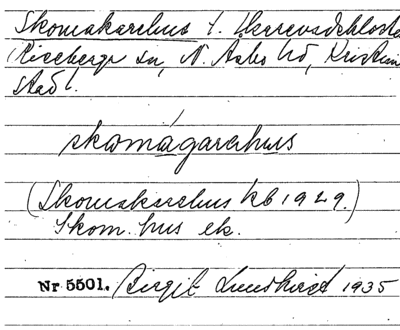 Skomakarehus t. Herrevadskloste
(Riseberga sn, N. Åsbo hd, Kristian
stad l.
skomágarehus
(Skomakarehus kb 1929.)
Skom. hus ek.
Nr 5501. Birgit Lundkvist 1935